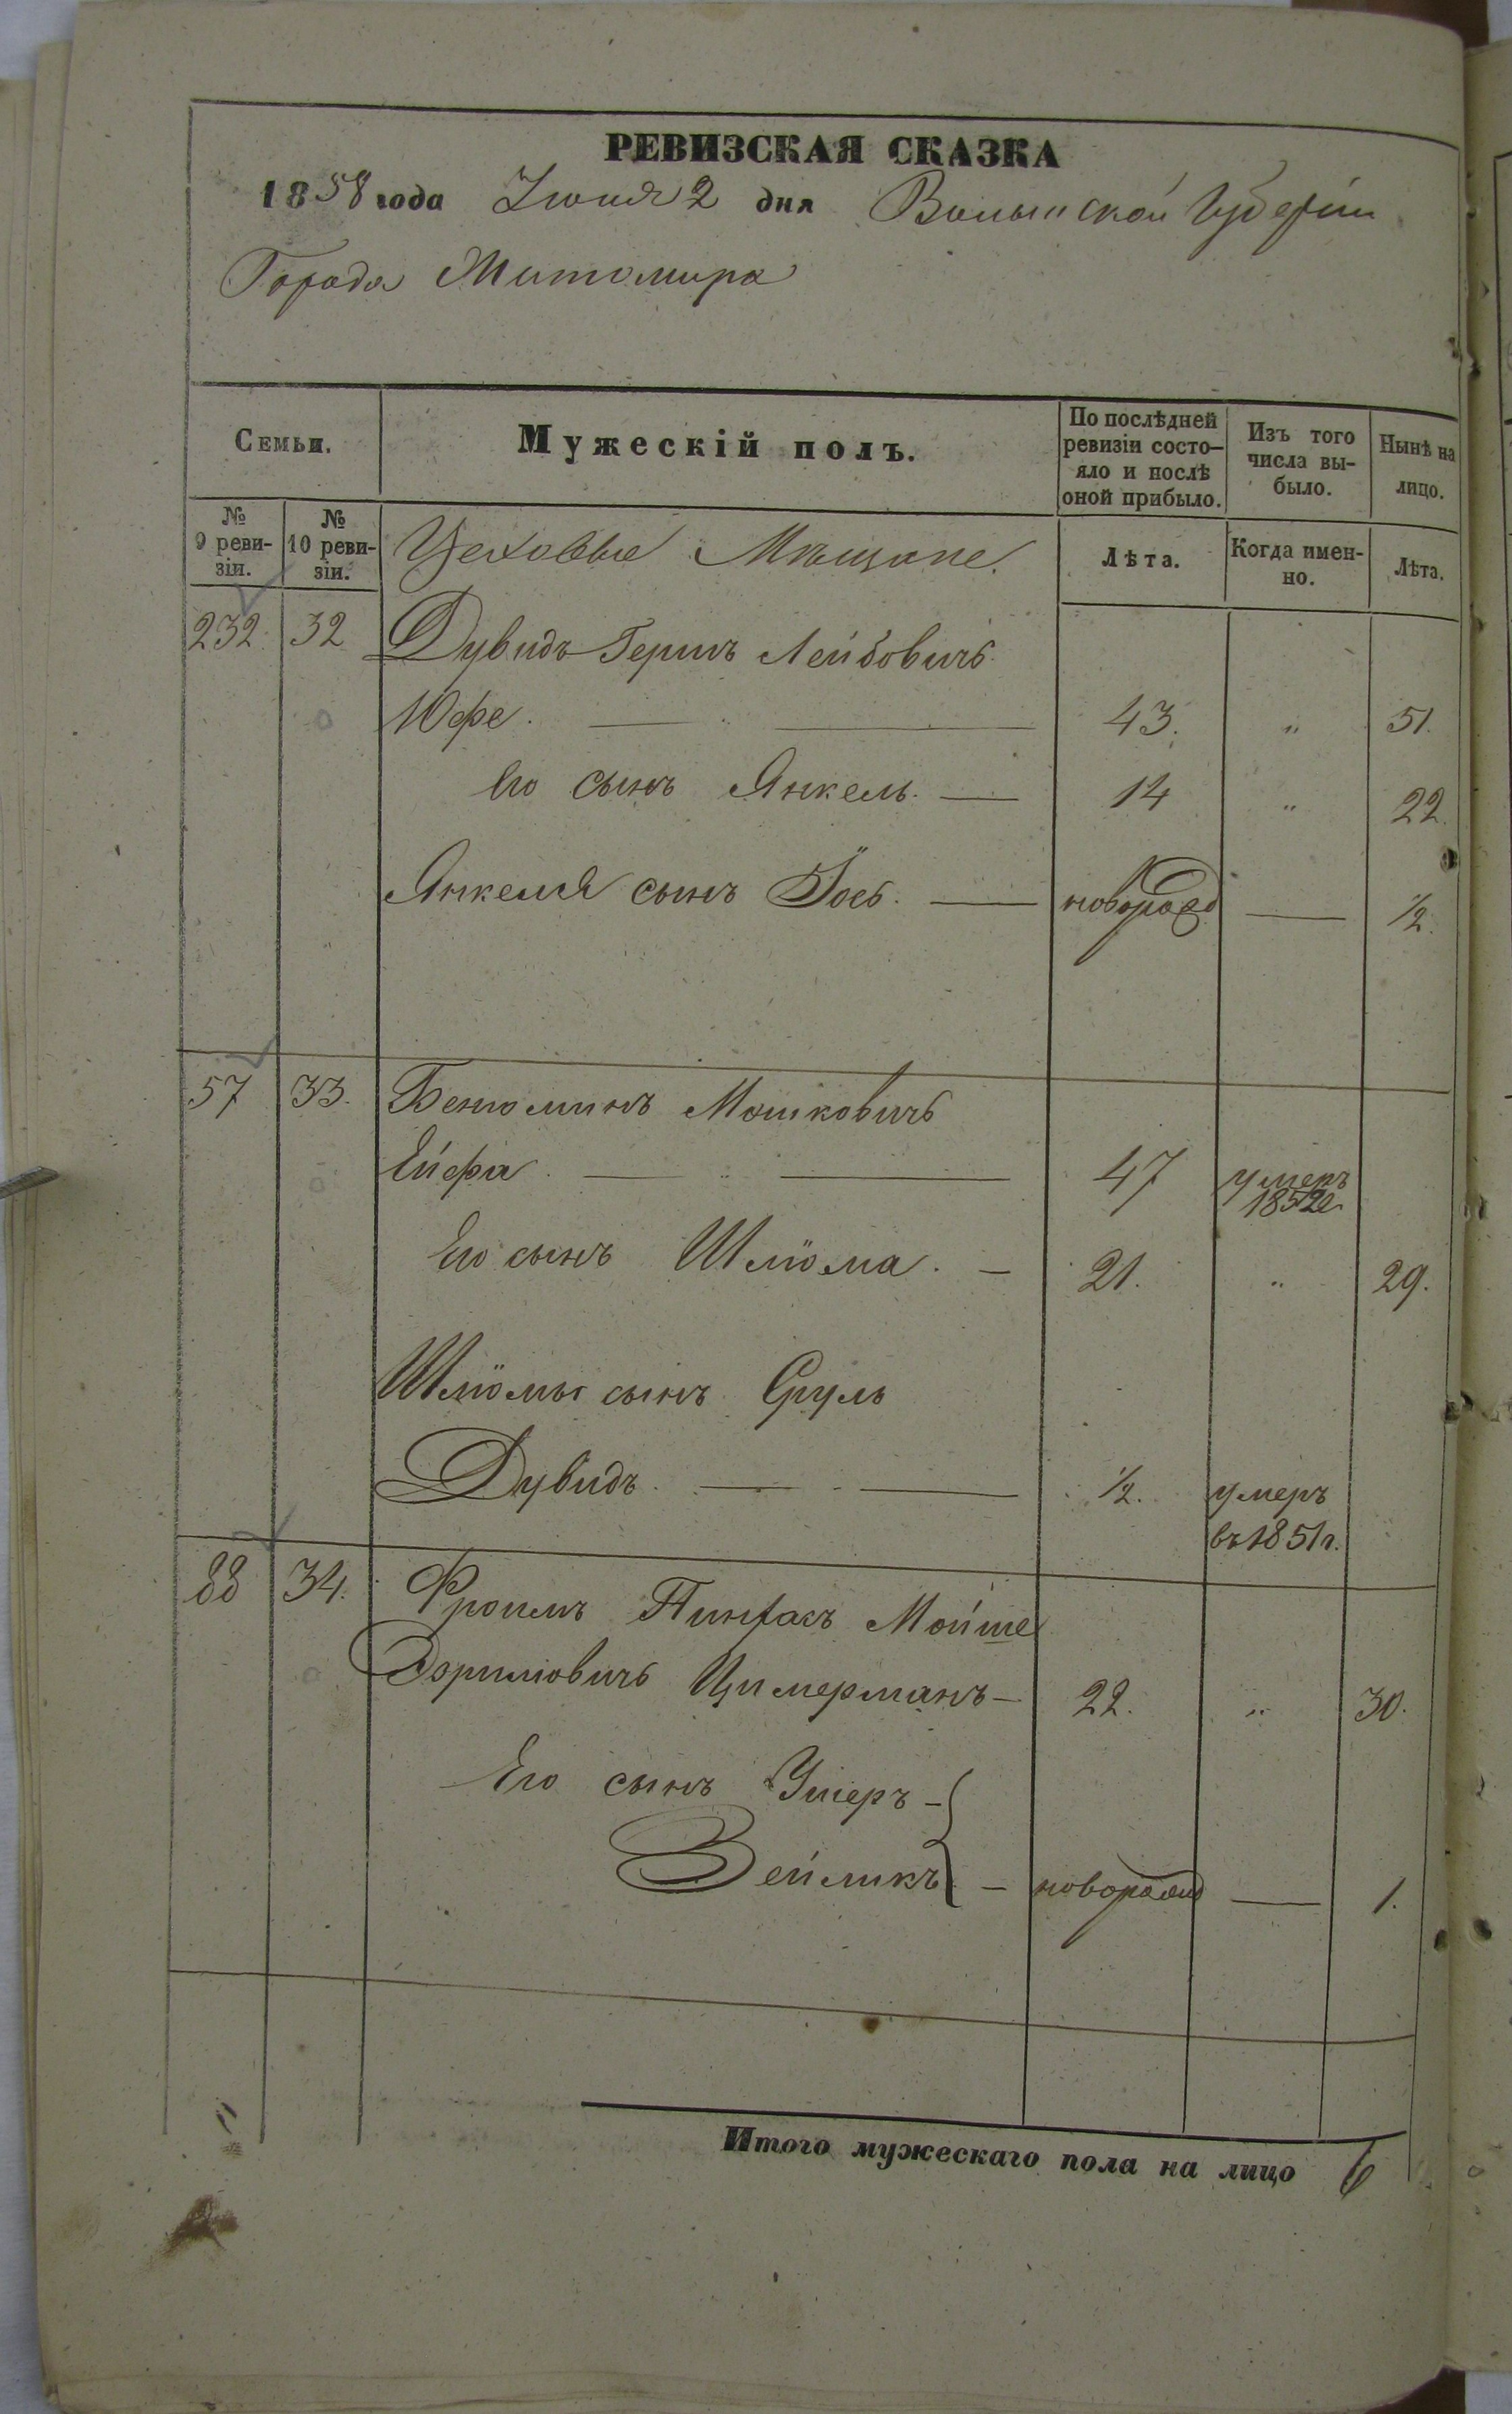 РЕВИЗСКАЯ СКАЗКА
1858 года Іюня 2 дня Волынской Губерніи
Города Житомира
Семьи.
Мужескій полъ.
По послѣдней ревизіи состо-яло и послѣ оной прибыло.
Изъ того числа вы-было.
Нынѣ на лицо.
№ 9 реви-зіи.
№ 10 реви-зіи.
Цеховые Мѣщане.
Лѣта.
Когда имен-но.
Лѣта.
232 32 Дувидъ Гершъ Лейбовичъ
Юфе. — „ — 43. „ 51.
Его сынъ Янкель. — 14 „ 22.
Янкеля сынъ Іось. — новорожд — 1/2.
57 33. Бенюминъ Мошковичъ
Ейфа. — „ — 47 умеръ 1852г.
Его сынъ Шліома. — 21. „ 29.
Шліомы сынъ Сруль
Дувидъ. — 1/2. умеръ
въ 1851г.
88 34. Фроимъ Пинхасъ Мойше
Цимерманъ — 22. „ 30.
Его сынъ Ушеръ —
Зейликъ — новорожд — 1.
Итого мужескаго пола на лицо 6